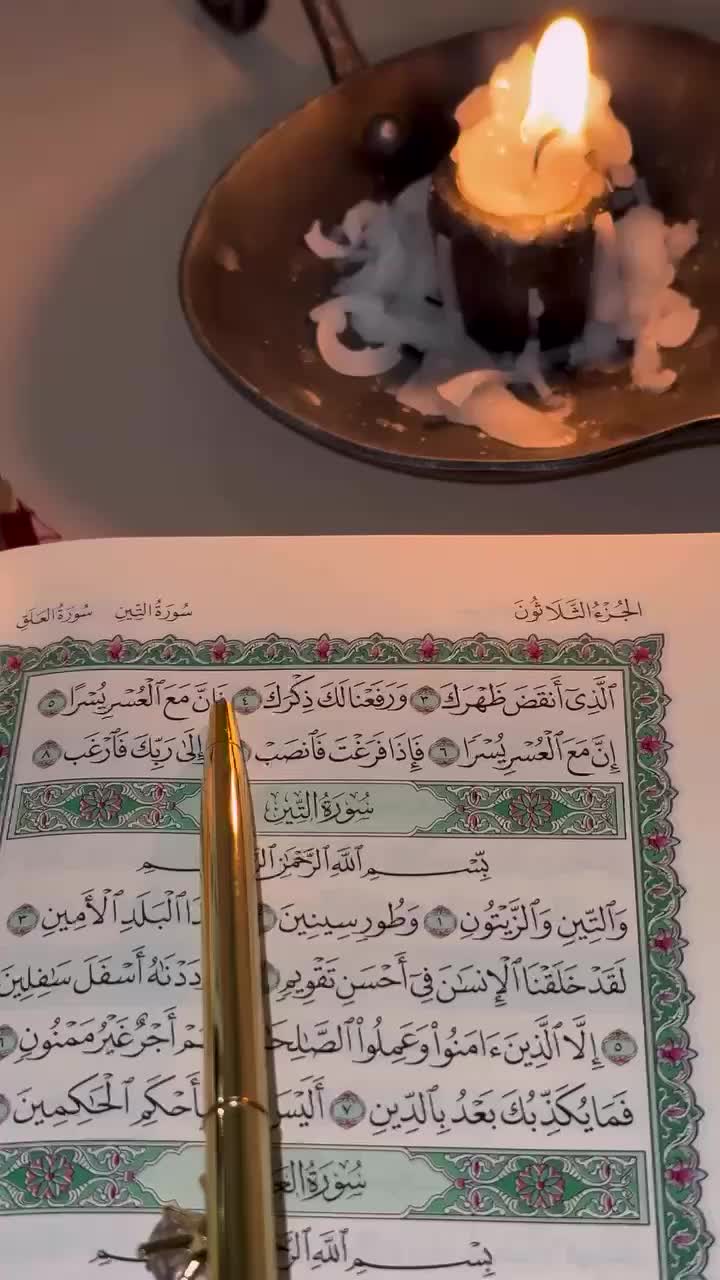 الجُزْءُ الثَّلَاثُونَ سُورَةُ التِّينِ سُورَةُ العَلَقِ
ٱلَّذِىٓ أَنقَضَ ظَهْرَكَ ٣ وَرَفَعْنَا لَكَ ذِكْرَكَ ٤ فَإِنَّ مَعَ ٱلْعُسْرِ يُسْرًا ٥
إِنَّ مَعَ ٱلْعُسْرِ يُسْرًا ٦ فَإِذَا فَرَغْتَ فَٱنصَبْ إِلَىٰ رَبِّكَ فَٱرْغَب ٨
سُورَةُ التِّينِ
بِسْمِ ٱللَّهِ ٱلرَّحْمَٰنِ
وَٱلتِّينِ وَٱلزَّيْتُونِ ١ وَطُورِ سِينِينَ ٱلْبَلَدِ ٱلْأَمِينِ ٣
لَقَدْ خَلَقْنَا ٱلْإِنسَٰنَ فِىٓ أَحْسَنِ تَقْوِيمٍ أَسْفَلَ سَٰفِلِينَ
٥ إِلَّا ٱلَّذِينَ ءَامَنُوا۟ وَعَمِلُوا۟ أَجْرٌ غَيْرُ مَمْنُونٍ
فَمَا يُكَذِّبُكَ بَعْدُ بِٱلدِّينِ ٧ ٱلْحَٰكِمِينَ
سُورَةُ
بِسْمِ ٱللَّهِ